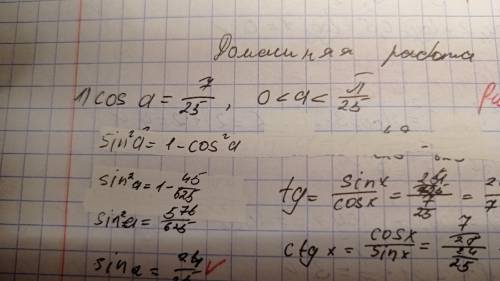 Домашняя работа
1) cos a = 7/25, 0 < a < π/25
sin²a = 1 - cos²a
sin²a = 1 - 45/625
sin²a = 576/625
sin a = 24/25
tg = sinx/cosx =
ctg x = cosx/sinx =